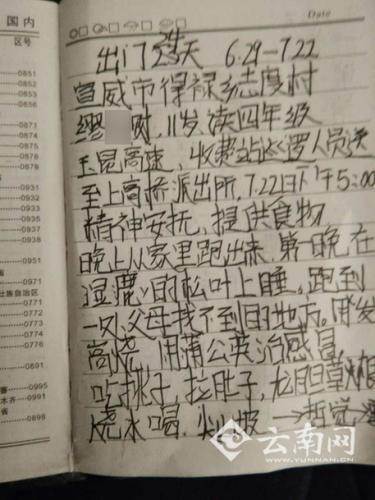 国内
区号
Date
0851
0852
0853
0854
0855
0856
0871
0874
0878
0876
0873
0931
0932
0934
0941
0971
壮族自治区
0772
0773
0774
0776
0891
0995
0996
24
出门23天 6.29-7.22
宣威市得禄乡志度村
缪 财,11岁读四年级
玉昆高速,收费站巡逻人员送
至上高桥派出所,7.22日下午5:00
精神安抚,提供食物
晚上从家里跑出来,第一晚在
湿漉的松叶上睡,跑到
一父母找不到的地方,
高烧 用蒲公英治感冒,
吃桃子,拉肚子,龙胆草
烧水喝.火披→哲觉→
云南网
WWW.YUNNAN.CN